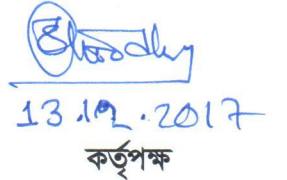 13.12.2017
কর্তৃপক্ষ